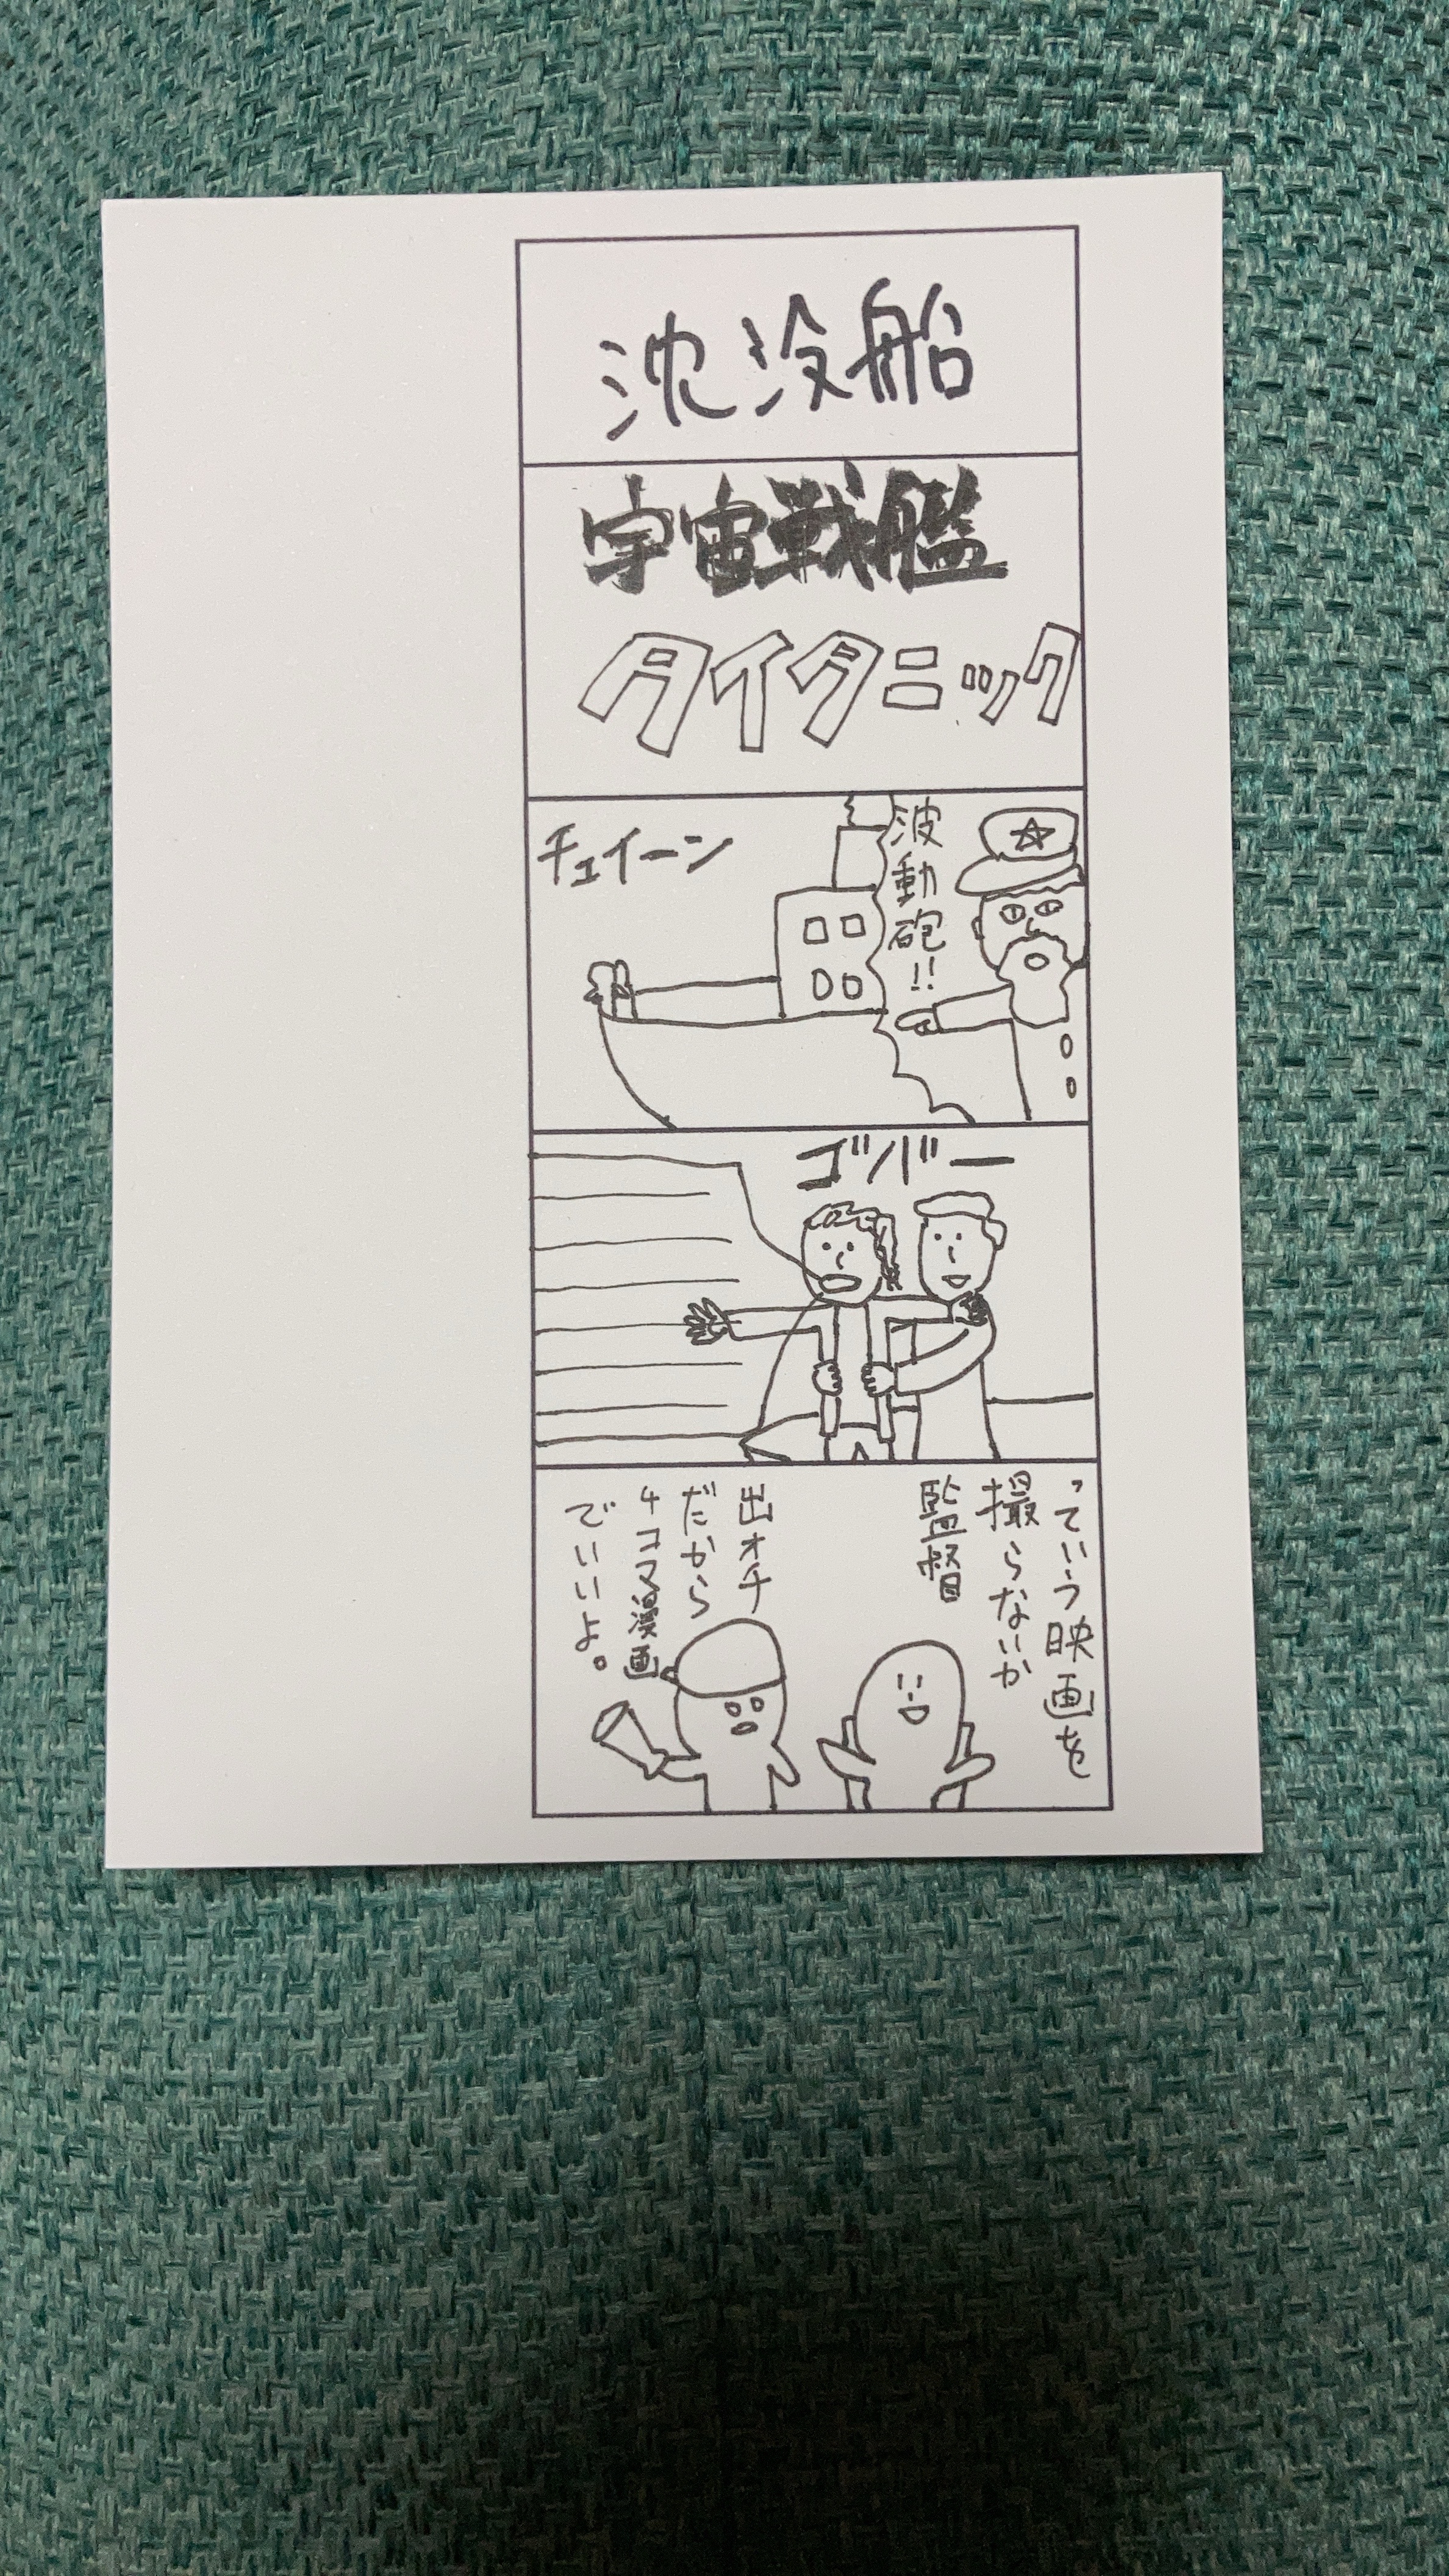 沈没船
宇宙戦艦
タイタニック
波動砲!!
チュイーン
ゴバー
っていう映画を
撮らないか
監督
出オチ
だから
4コマ漫画
でいいよ。